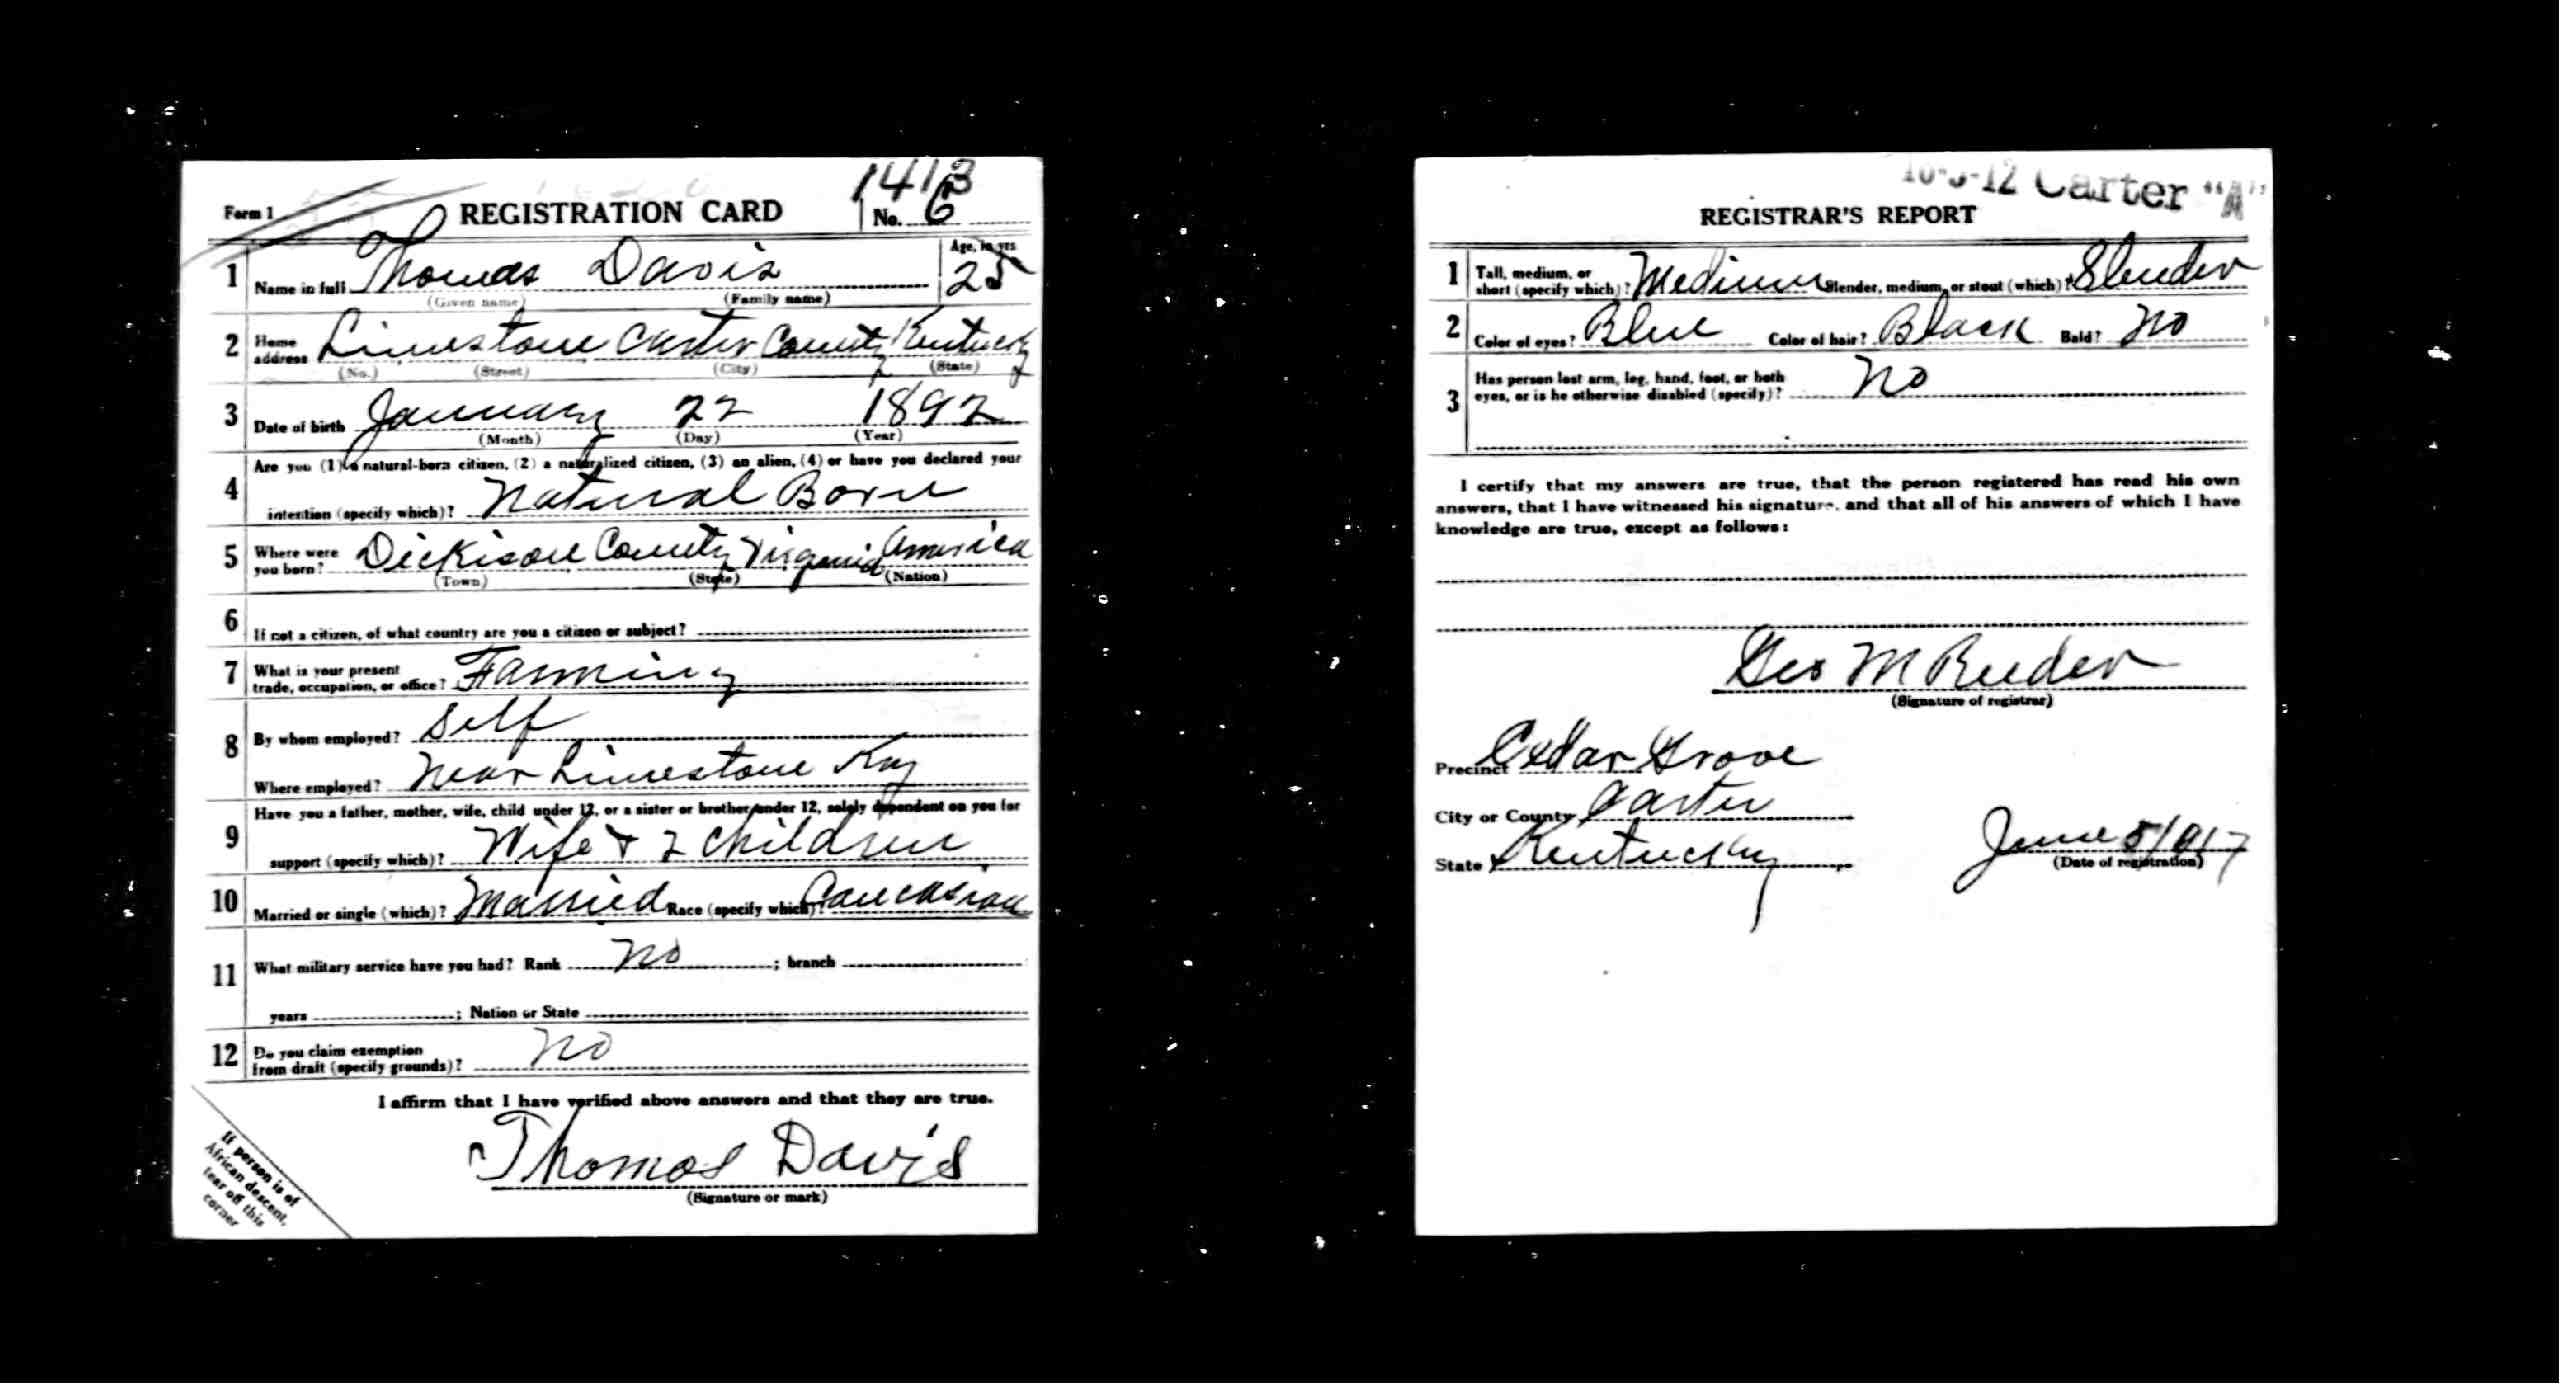 1413
Form 1 REGISTRATION CARD No. 6
1 Name in full Thomas Davis Age, in yrs 25
(Given name) (Family name)
2 Home address Limestone Carter County Kentucky
(No.) (Street) (City) (State)
3 Date of birth January 22 1892
(Month) (Day) (Year)
4 Are you (1) a natural-born citizen, (2) a naturalized citizen, (3) an alien, (4) or have you declared your
intention (specify which)? Natural Born
5 Where were you born? Dickison County Virginia America
(Town) (State) (Nation)
6 If not a citizen, of what country are you a citizen or subject?
7 What is your present
trade, occupation, or office? Farming
8 By whom employed? Self
Where employed? Near Limestone Ky
9 Have you a father, mother, wife, child under 12, or a sister or brother under 12, solely dependent on you for
support (specify which)? Wife & 2 Children
10 Married or single (which)? Married Race (specify which)? Caucasian
11 What military service have you had? Rank No ; branch
years ; Nation or State
12 Do you claim exemption
from draft (specify grounds)? No
I affirm that I have verified above answers and that they are true.
Thomas Davis
(Signature or mark)
If person is of
African descent,
tear off this
corner
Carter "A"
REGISTRAR'S REPORT
1 Tall, medium, or
short (specify which)? Medium Slender, medium, or stout (which)? Slender
2 Color of eyes? Blue Color of hair? Black Bald? No
3 Has person lost arm, leg, hand, foot, or both
eyes, or is he otherwise disabled (specify)? No
I certify that my answers are true, that the person registered has read his own
answers, that I have witnessed his signature, and that all of his answers of which I have
knowledge are true, except as follows:
Geo M Reeder
(Signature of registrar)
Precinct Cedar Grove
City or County Carter
State Kentucky June 5/917
(Date of registration)